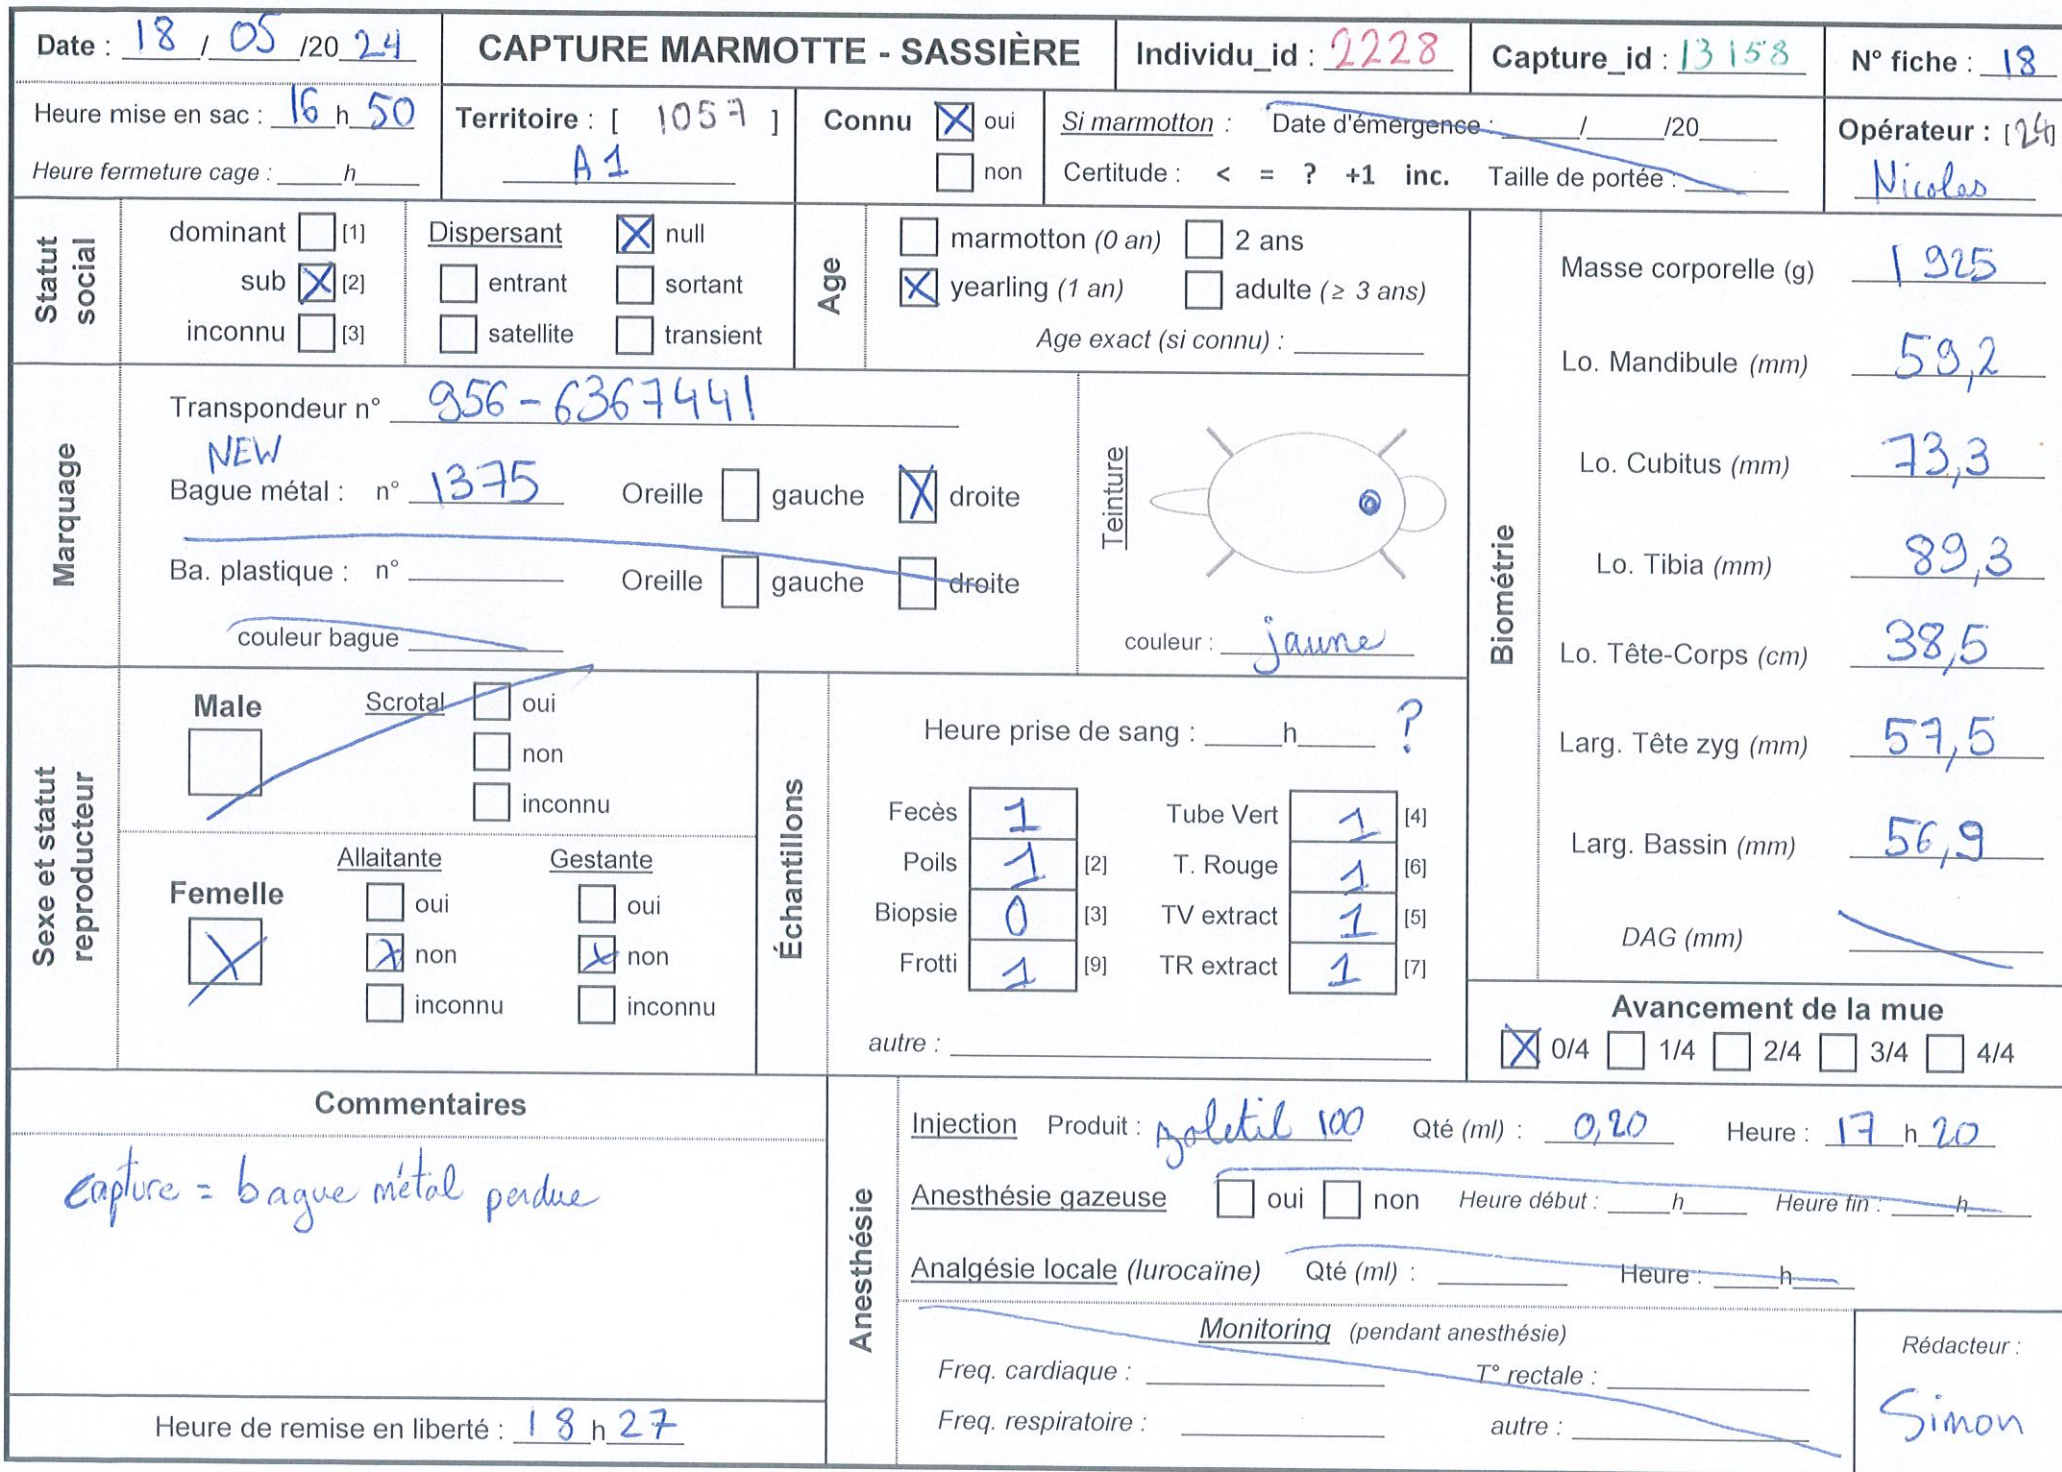 Date : 18 / 05 /20 24
CAPTURE MARMOTTE - SASSIÈRE
Individu_id : 2228
Capture_id : 13158
N° fiche : 18
Heure mise en sac : 16 h 50
Heure fermeture cage : ____h____
Territoire : [ 1057 ]
A1
Connu
oui
non
Si marmotton : Date d'émergence : ____/____/20____
Certitude : < = ? +1 inc. Taille de portée : ____
Opérateur : [24]
Nicolas
Statut social
dominant [1]
sub X [2]
inconnu [3]
Dispersant
X null
entrant
sortant
satellite
transient
Age
marmotton (0 an)
2 ans
X yearling (1 an)
adulte (≥ 3 ans)
Age exact (si connu) : ____
Marquage
Transpondeur n° 956-6367441
NEW
Bague métal : n° 1375 Oreille gauche X droite
Ba. plastique : n° ____ Oreille gauche droite
couleur bague ____
Teinture
couleur : jaune
Biométrie
Masse corporelle (g) 1925
Lo. Mandibule (mm) 59,2
Lo. Cubitus (mm) 73,3
Lo. Tibia (mm) 89,3
Lo. Tête-Corps (cm) 38,5
Larg. Tête zyg (mm) 57,5
Larg. Bassin (mm) 56,9
DAG (mm)
Sexe et statut reproducteur
Male
Scrotal
oui
non
inconnu
Femelle
X
Allaitante
oui
X non
inconnu
Gestante
oui
X non
inconnu
Échantillons
Heure prise de sang : ____h____ ?
Fecès 1
Tube Vert 1 [4]
Poils 1 [2]
T. Rouge 1 [6]
Biopsie 0 [3]
TV extract 1 [5]
Frotti 1 [9]
TR extract 1 [7]
autre : ____
Avancement de la mue
X 0/4 1/4 2/4 3/4 4/4
Commentaires
capture = bague métal perdue
Heure de remise en liberté : 18 h 27
Anesthésie
Injection Produit : zoletil 100 Qté (ml) : 0,20 Heure : 17 h 20
Anesthésie gazeuse oui non Heure début : ____h____ Heure fin : ____h____
Analgésie locale (lurocaïne) Qté (ml) : ____ Heure : ____h____
Monitoring (pendant anesthésie)
Freq. cardiaque : ____ T° rectale : ____
Freq. respiratoire : ____ autre : ____
Rédacteur :
Simon